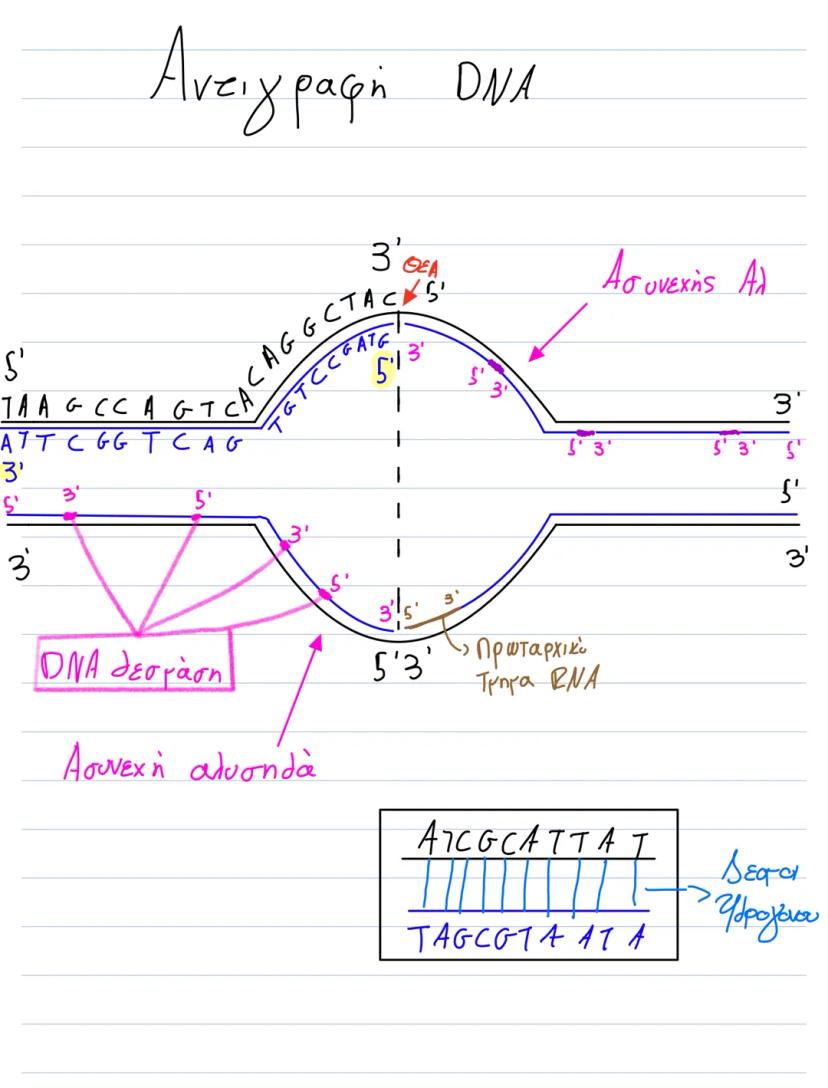 Αντιγραφή DNA
3' ΘΕΑ 5'
Ασυνεχής Αλ
5' TAAGCCAGTCACAGGCTAC 3'
ATTCGGTCAGTGTCCGATG 5' 3' 5' 3' 5' 3' 5' 3' 5'
3'
5' 3' 5' 5'
3' 3' 3'
5'
3' 5' 3'
5' 3' Πρωταρχικό
Τμημα RNA
DNA δεσμάση
Ασυνεχή αλυσηδα
ATCGCATTAT
Δεσμοι
Υδρογόνου
TAGCGTAATA